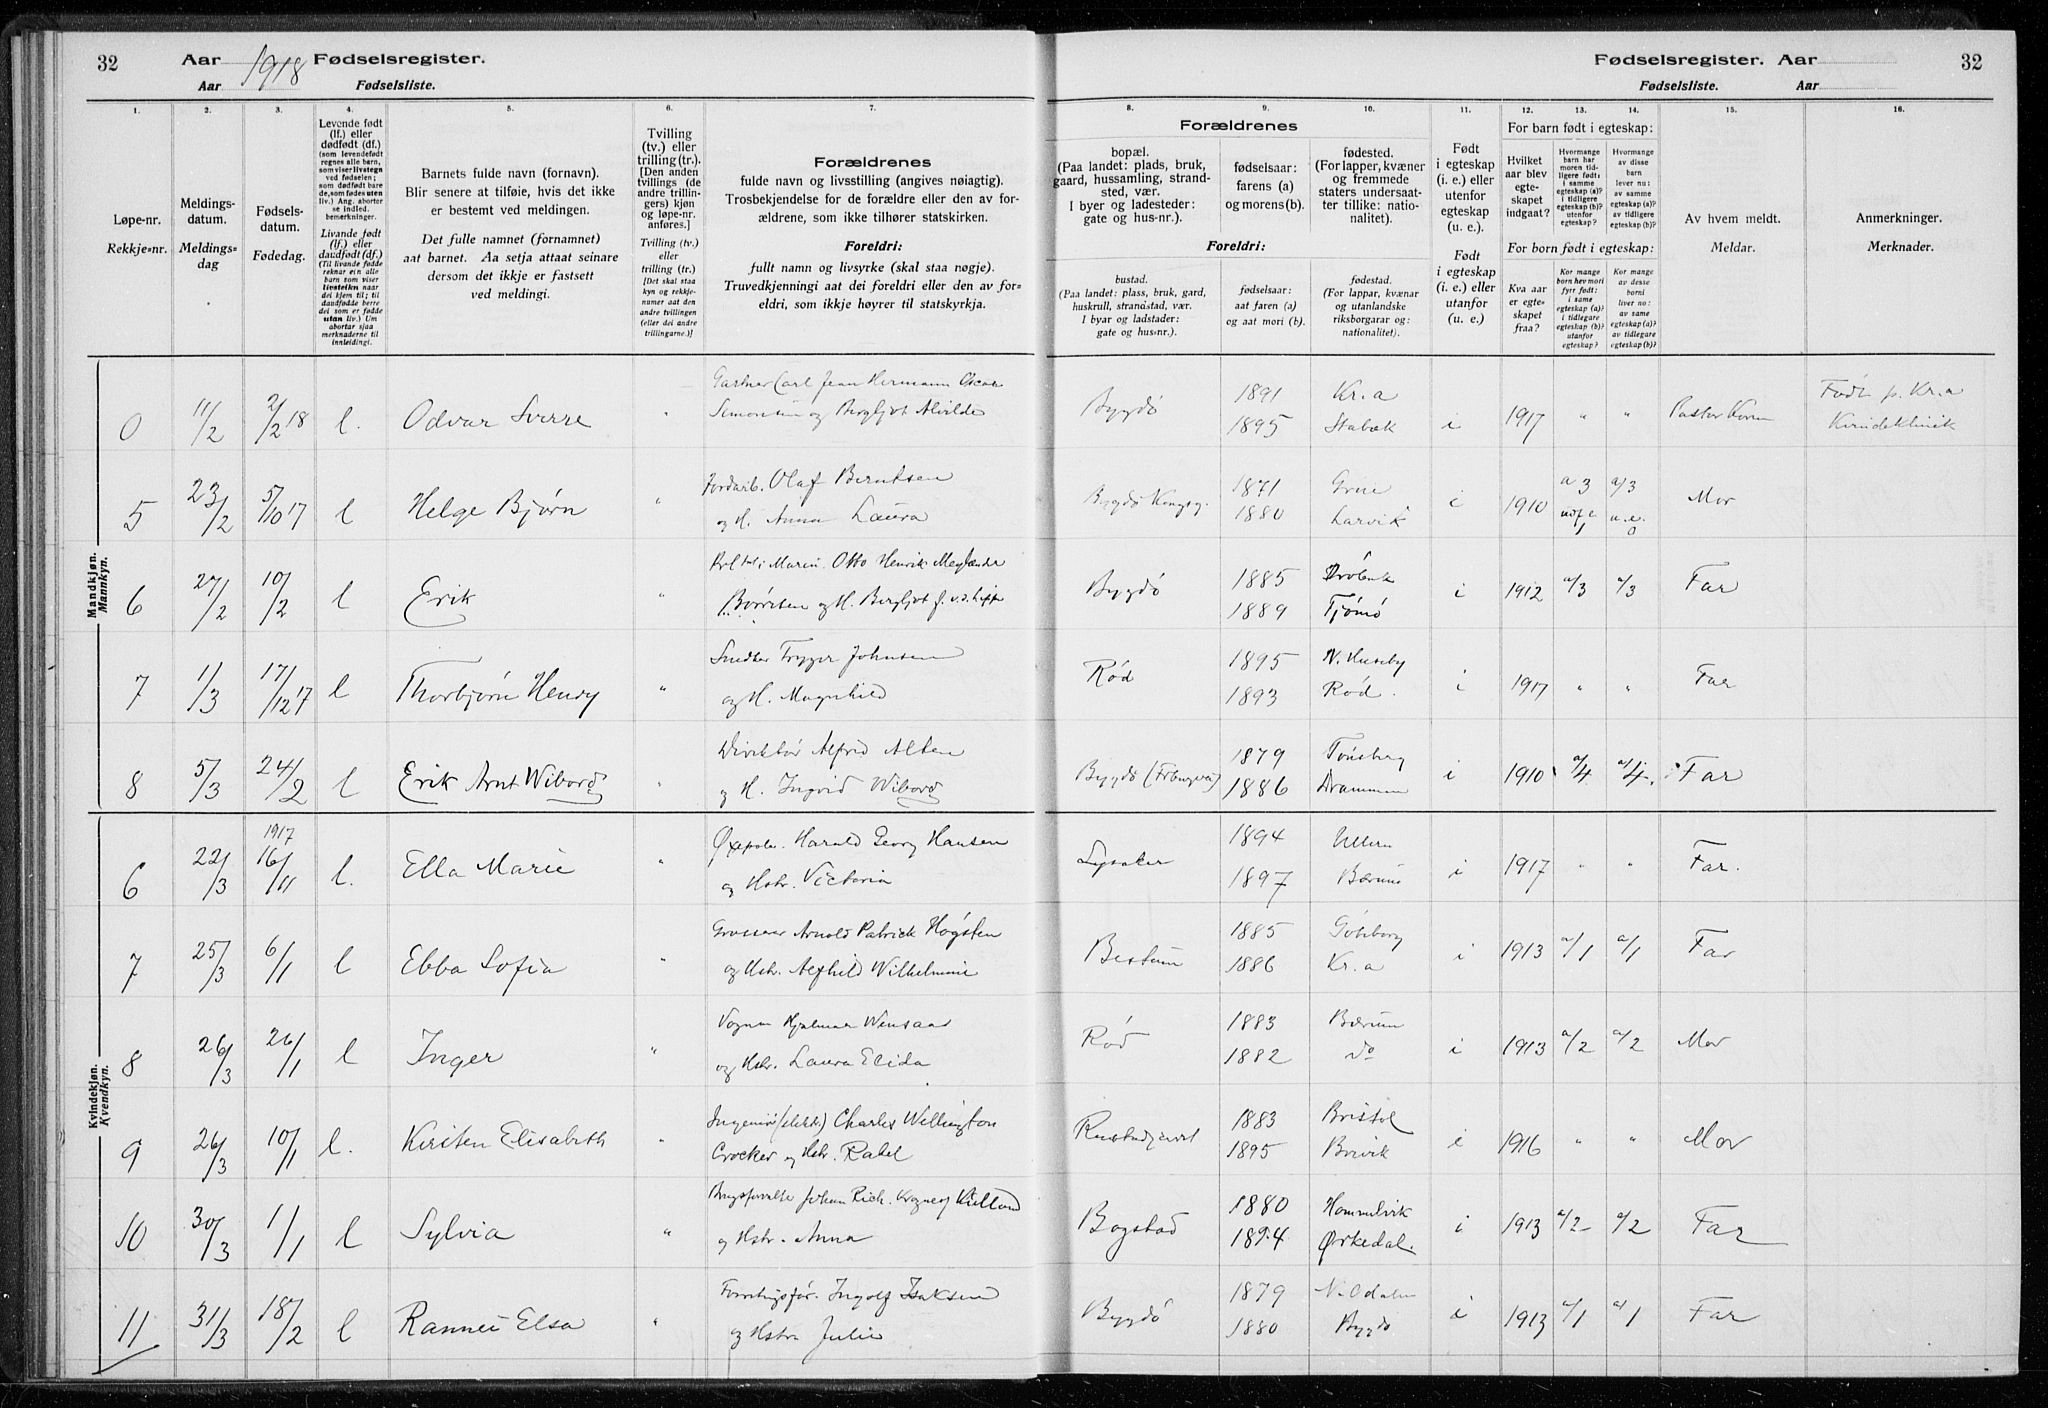 32 Aar 1918 Fødselsregister.
Aar Fødselsliste.
Fødselsregister. Aar 32
Fødselsliste. Aar
1. 2. 3. 4. 5. 6. 7. 8. 9. 10. 11. 12. 13. 14. 15. 16.
Løpe-nr.
Rekkje-nr.
Meldings-
datum.
Meldings-
dag
Fødsels-
datum.
Fødedag.
Levende født
(lf.) eller
dødfødt (df.)
(som levendefødt
regnes alle barn,
som viser livstegn
ved fødselen;
som dødfødt bare
de, som fødes uten
liv.) Ang. aborter
se indled.
bemerkninger.
Livande født
(lf.) eller
daudfødt (df.)
(Til livande fødde
reknar ein alle
barn som viser
livsteikn naar
dei kjem til; til
daudfødde berre
dei som er fødde
utan liv.) Um
abortar sjaa
merknaderne til
innleidingi.
Barnets fulde navn (fornavn).
Blir senere at tilføie, hvis det ikke
er bestemt ved meldingen.
Det fulle namnet (fornamnet)
aat barnet. Aa setja attaat seinare
dersom det ikkje er fastsett
ved meldingi.
Tvilling
(tv.) eller
trilling (tr.).
[Den anden
tvillings (de
andre trillin-
gers) kjøn
og løpe-nr.
anføres.]
Tvilling (tv.)
eller
trilling (tr.)
[Det skal staa
kyn og rekkje-
numer aat den
andre tvillingen
(eller dei andre
trillingarne.)]
Forældrenes
fulde navn og livsstilling (angives nøiagtig).
Trosbekjendelse for de forældre eller den av for-
ældrene, som ikke tilhører statskirken.
Foreldri:
fullt namn og livsyrke (skal staa nøgje).
Truvedkjenningi aat dei foreldri eller den av for-
eldri, som ikkje høyrer til statskyrkja.
Forældrenes
bopæl.
(Paa landet: plads, bruk,
gaard, hussamling, strand-
sted, vær.
I byer og ladesteder:
gate og hus-nr.).
fødselsaar:
farens (a)
og morens (b).
fødested.
(For lapper, kvæner
og fremmede
staters undersaat-
ter tillike: natio-
nalitet).
Foreldri:
bustad.
(Paa landet: plass, bruk, gard,
huskrull, strandstad, vær.
I byar og ladstader:
gate og hus-nr.).
fødselsaar:
aat faren (a)
og aat mori (b).
fødestad.
(For lappar, kvænar
og utanlandske
riksborgarar og:
nationalitet).
Født
i egteskap
(i. e.) eller
utenfor
egteskap
(u. e.).
Født
i egteskap
(i. e.) eller
utanfor
(u. e.).
For barn født i egteskap:
Hvilket
aar blev
egte-
skapet
indgaat?
Hvormange
barn har
moren tid-
ligere født:
i samme
egteskap (a)?
i tidligere
egteskap (b)?
utenfor
egteskap?
Hvormange
av disse
barn
lever nu:
av samme
egteskap (a)?
av tidligere
egteskap (b)?
For born født i egteskap:
Kva aar
er egte-
skapet
fraa?
Kor mange
born hev mori
fyrr født:
i same
egteskap (a)?
i tidlegare
egteskap (b)?
utanfor
egteskap?
Kor mange
av desse
borni
liver no:
av same
egteskap (a)?
av tidlegare
egteskap (b)?
Av hvem meldt.
Meldar.
Anmerkninger.
Merknader.
Mandkjøn.
Mannkyn.
Gartner Carl Jean Hermann Oscar 1891 Kr.a Født p. Kr.a
0 11/2 2/2 18 l. Odvar Sverre " Simonsen og Bergljot Alvilde Bygdø 1895 Stabæk i 1917 " " Pastor Kvinneklinik
Jordarb. Olaf Berntsen 1871 Grue a 3 a/3
5 23/2 5/10 17 l Helge Bjørn " og H. Anna Laura Bygdø Kongsg. 1880 Larvik i 1910 1 u.e. 0 Mor
Otto Henrik 1885 Drøbak
6 27/2 10/2 l Erik " og H. Bergljot f. Bygdø 1889 Tjømø i 1912 a/3 a/3 Far
Snedker Trygve Johnsen 1895 N. Huseby
7 1/3 17/12 17 l Thorbjørn Henry " og H. Magnhild Rød 1893 Rød. i 1917 " " Far
Direktør Alfred Alten 1879 Tønsberg
8 5/3 24/2 l Erik Arnt Wiborg " og H. Ingrid Wiborg Bygdø 1886 Drammen i 1910 a/4 a/4 Far
Kvindekjøn.
Kvendkyn.
1917 Harald Georg Hansen 1894 Ullern
6 22/3 16/11 l. Ella Marie " og Hstr. Victoria Lysaker 1897 Bærum i 1917 " " Far.
Grosserer Arnold Patrick Høgsten 1885 Göteborg
7 25/3 6/1 l Ebba Sofia og Hstr. Alfhild Wilhelmine Bestum 1886 Kr.a i 1913 a/1 a/1 Far
Vognm Hjalmar Wensaas 1883 Bærum
8 26/3 26/1 l Inger " og Hstr. Laura Elida Rød 1882 do i 1913 a/2 a/2 Mor
Ingeniør (elekt.) Charles Wellington 1883 Bristol
9 26/3 10/1 l. Kirsten Elisabeth " Crocker og Hstr. Rakel 1895 Brevik i 1916 " " Mor
Brugsforvalter Johan Rich. Kielland 1880 Hommelvik
10 30/3 1/1 l Sylvia " og Hstr. Anna Bogstad 1894 Ørkedal. i 1913 a/2 a/2 Far
Forretningsfør. Ingolf Isaksen 1879 N. Odalen
11 31/3 18/2 l Rannei Elsa " og Hstru Julie Bygdø 1880 Bygdø i 1913 a/1 a/1 Far